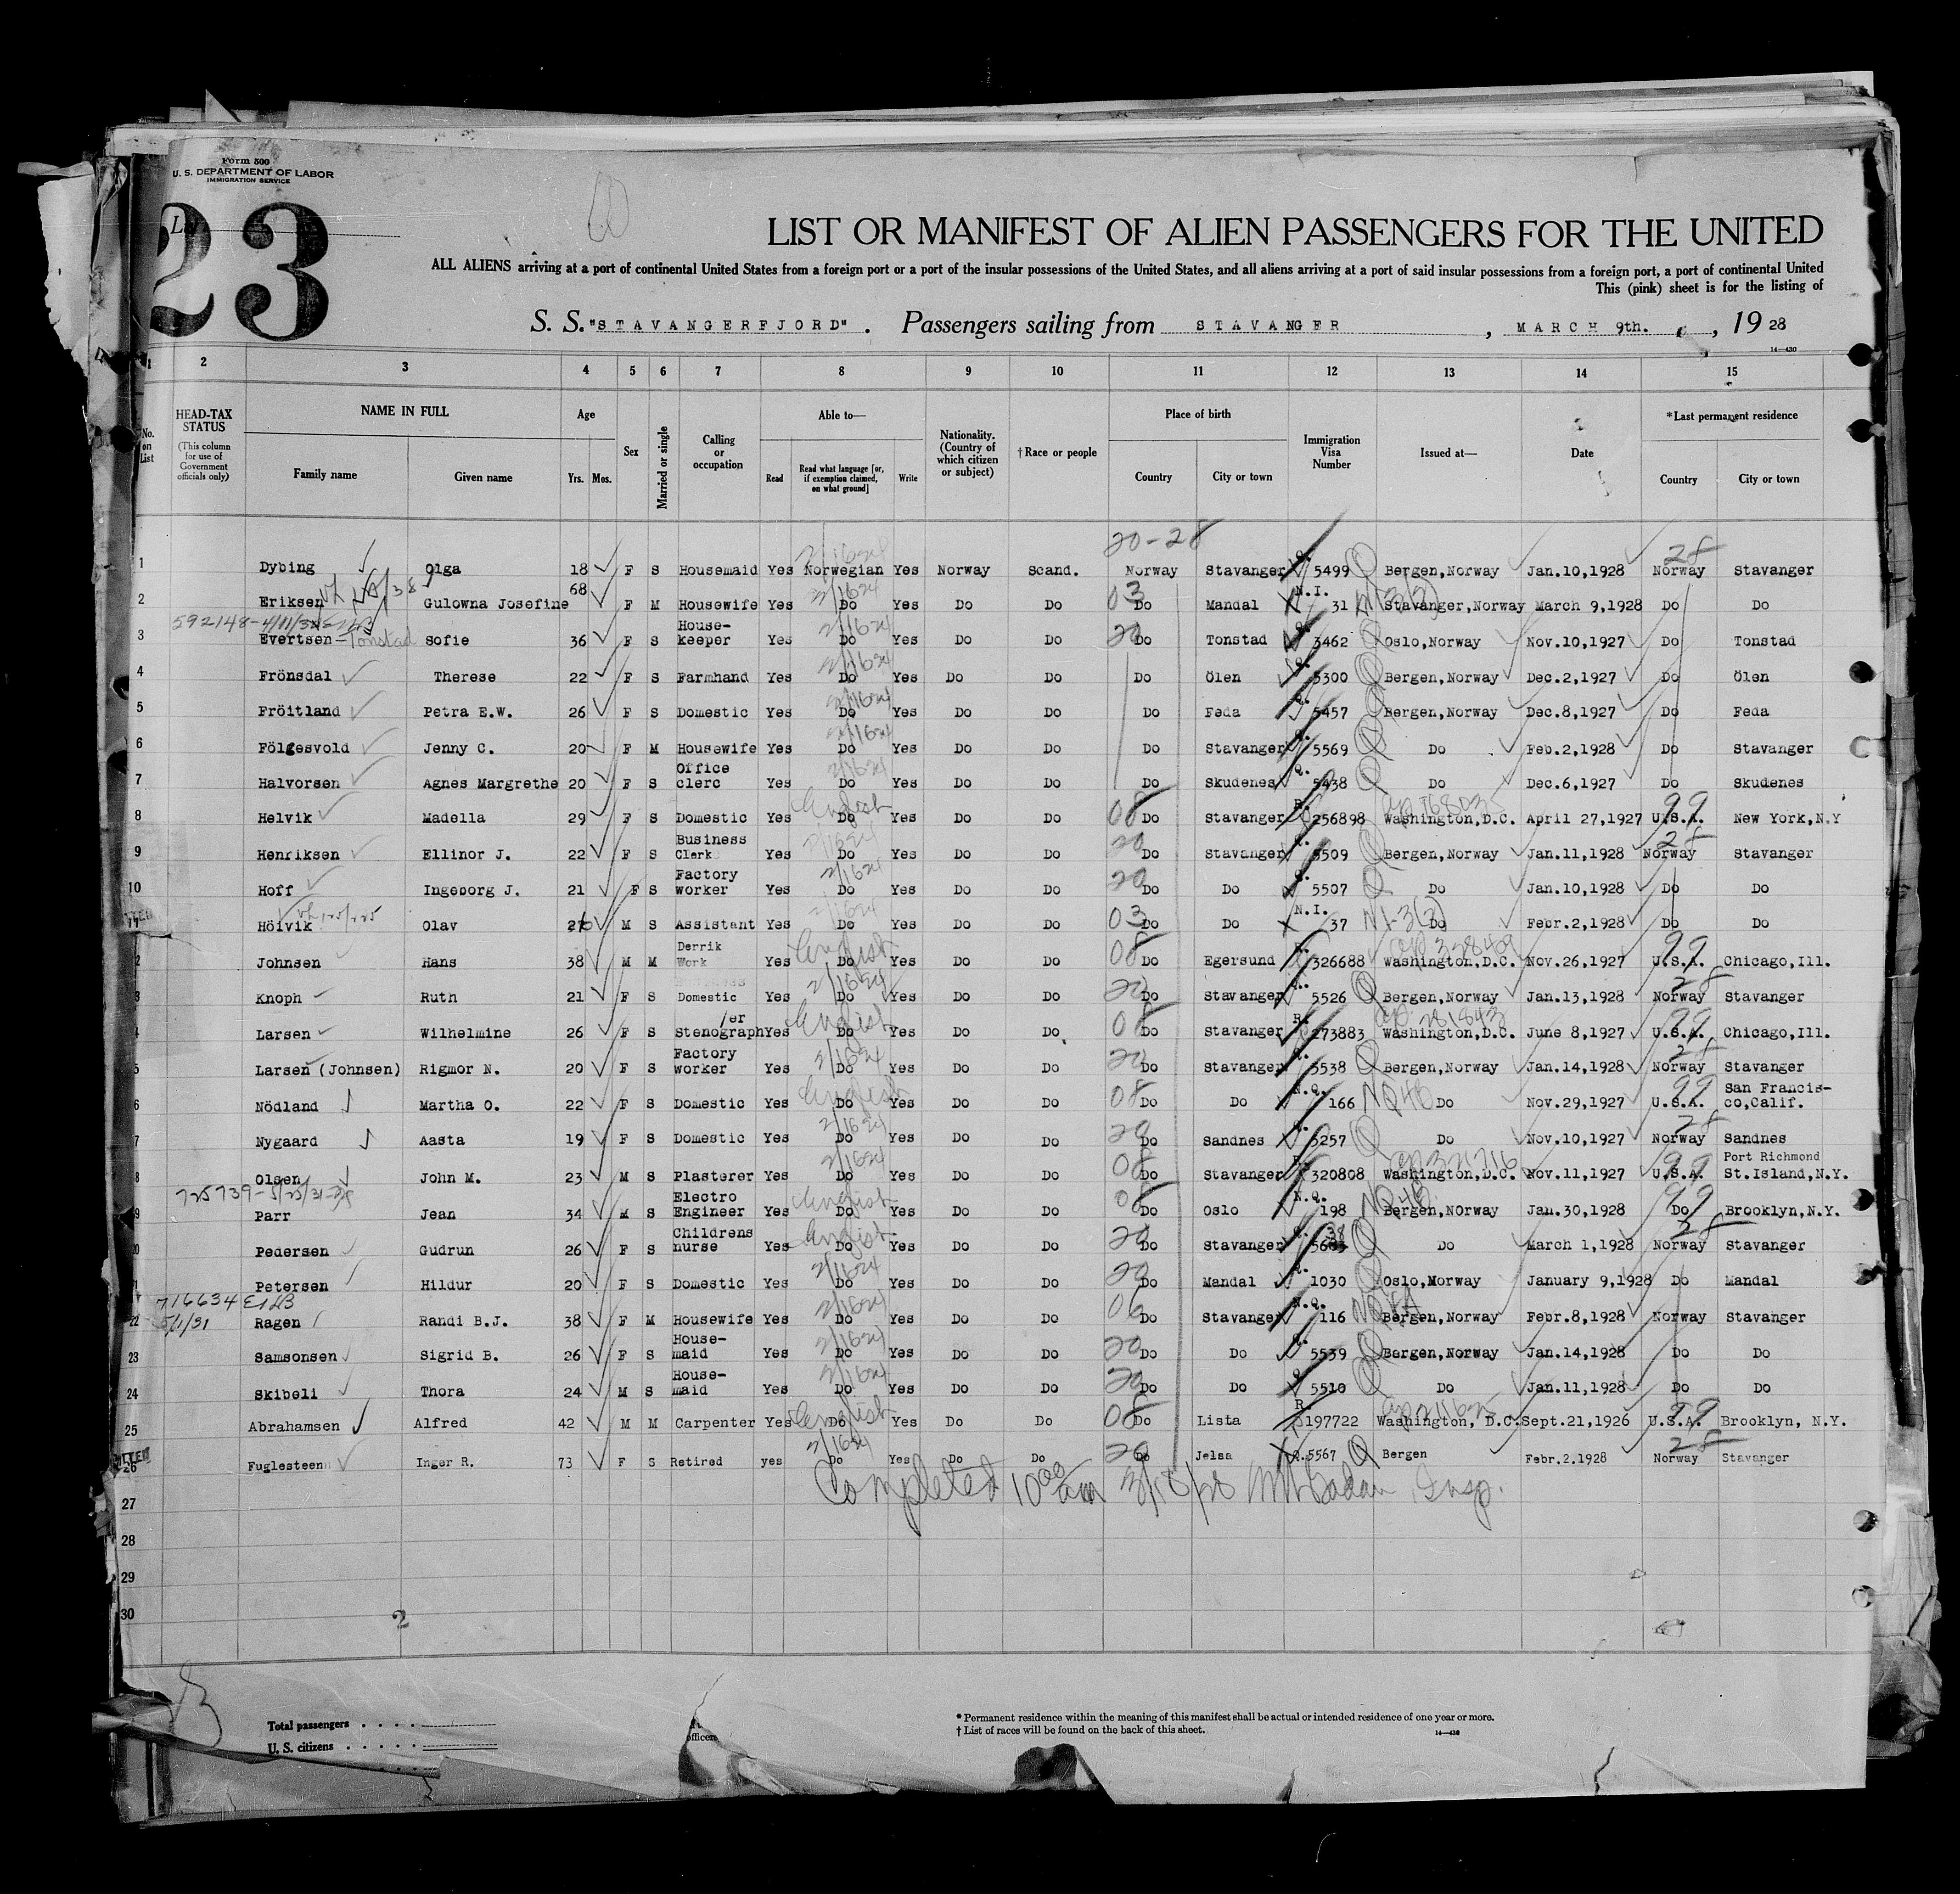 Form 500
U. S. DEPARTMENT OF LABOR
IMMIGRATION SERVICE
23
LIST OR MANIFEST OF ALIEN PASSENGERS FOR THE UNITED
ALL ALIENS arriving at a port of continental United States from a foreign port or a port of the insular possessions of the United States, and all aliens arriving at a port of said insular possessions from a foreign port, a port of continental United
This (pink) sheet is for the listing of
S. S. "STAVANGERFJORD" . Passengers sailing from STAVANGER , MARCH 9th. , 19 28
14—430
1 2 3 4 5 6 7 8 9 10 11 12 13 14 15
No. on List HEAD-TAX STATUS (This column for use of Government officials only) NAME IN FULL Family name Given name Age Yrs. Mos. Sex Married or single Calling or occupation Able to— Read Read what language [or, if exemption claimed, on what ground] Write Nationality. (Country of which citizen or subject) † Race or people Place of birth Country City or town Immigration Visa Number Issued at— Date *Last permanent residence Country City or town
20-28
1 Dybing Olga 18 F S Housemaid Yes Norwegian Yes Norway Scand. Norway Stavanger Q. 5499 Q Bergen,Norway Jan.10,1928 28 Norway Stavanger
2 Eriksen Gulowna Josefine 68 F M Housewife Yes Do Yes Do Do 03 Do Mandal N.I. 31 Stavanger,Norway March 9,1928 Do Do
592148-4/11/32
3 Evertsen - Tonstad Sofie 36 F S House-keeper Yes Do Yes Do Do 20 Do Tonstad Q. 3462 Q Oslo,Norway Nov.10,1927 Do Tonstad
4 Frönsdal Therese 22 F S Farmhand Yes Do Yes Do Do Do Ölen Q. 5300 Q Bergen,Norway Dec.2,1927 Do Ölen
5 Fröitland Petra E.W. 26 F S Domestic Yes Do Yes Do Do Do Feda Q. 5457 Q Bergen,Norway Dec.8,1927 Do Feda
6 Fölgesvold Jenny C. 20 F M Housewife Yes Do Yes Do Do Do Stavanger Q. 5569 Q Do Feb.2,1928 Do Stavanger
7 Halvorsen Agnes Margrethe 20 F S Office clerc Yes Do Yes Do Do Do Skudenes Q. 5438 Q Do Dec.6,1927 Do Skudenes
8 Helvik Madella 29 F S Domestic Yes English Do Yes Do Do 08 Do Stavanger R. 256898 Washington,D.C. April 27,1927 99 U.S.A. New York,N.Y
9 Henriksen Ellinor J. 22 F S Business Clerk Yes Do Yes Do Do 20 Do Stavanger Q. 5509 Q Bergen,Norway Jan.11,1928 28 Norway Stavanger
10 Hoff Ingeborg J. 21 F S Factory worker Yes Do Yes Do Do 20 Do Do Q. 5507 Q Do Jan.10,1928 Do Do
11 Höivik Olav 26 M S Assistant Yes Do Yes Do Do 03 Do Do N.I. 37 NI-3(2) Do Febr.2,1928 Do Do
2 Johnsen Hans 38 M M Derrik Work Yes English Do Yes Do Do 08 Do Egersund R. 326688 Washington,D.C. Nov.26,1927 99 U.S.A. Chicago,Ill.
3 Knoph Ruth 21 F S Domestic Yes Do Yes Do Do 20 Do Stavanger Q. 5526 Q Bergen,Norway Jan.13,1928 28 Norway Stavanger
4 Larsen Wilhelmine 26 F S Stenograph/er Yes English Do Yes Do Do 08 Do Stavanger R. 273883 Washington,D.C. June 8,1927 99 U.S.A. Chicago,Ill.
5 Larsen (Johnsen) Rigmor N. 20 F S Factory worker Yes Do Yes Do Do 20 Do Stavanger Q. 5538 Q Bergen,Norway Jan.14,1928 28 Norway Stavanger
6 Nödland Martha O. 22 F S Domestic Yes English Do Yes Do Do 08 Do Do N.Q. 166 NQ4B Do Nov.29,1927 99 U.S.A. San Francis-co,Calif.
7 Nygaard Aasta 19 F S Domestic Yes Do Yes Do Do 20 Do Sandnes Q. 5257 Q Do Nov.10,1927 28 Norway Sandnes
8 Olsen John M. 23 M S Plasterer Yes Do Yes Do Do 08 Do Stavanger R. 320808 Washington,D.C. Nov.11,1927 99 U.S.A. Port Richmond St.Island,N.Y.
725739-5/25/31
9 Parr Jean 34 M S Electro Engineer Yes English Do Yes Do Do 08 Do Oslo N.Q. 198 NQ4B Bergen,NOrway Jan.30,1928 99 Do Brooklyn,N.Y.
20 Pedersen Gudrun 26 F S Childrens nurse Yes English Do Yes Do Do 20 Do Stavanger Q. Q Do March 1,1928 28 Norway Stavanger
21 Petersen Hildur 20 F S Domestic Yes Do Yes Do Do 20 Do Mandal Q. 1030 Q Oslo,Norway January 9,1928 Do Mandal
716634
5/1/31
22 Ragen Randi B.J. 38 F M Housewife Yes Do Yes Do Do 06 Do Stavanger N.Q. 116 Bergen,Norway Febr.8,1928 Norway Stavanger
23 Samsonsen Sigrid B. 26 F S House-maid Yes Do Yes Do Do 20 Do Do Q. 5539 Q Bergen,Norway Jan.14,1928 Do Do
24 Skibeli Thora 24 M S House-maid Yes Do Yes Do Do 20 Do Do Q. 5510 Q Do Jan.11,1928 Do Do
25 Abrahamsen Alfred 42 M M Carpenter Yes English Do Yes Do Do 08 Do Lista R. 197722 Washington, D.C. Sept.21,1926 99 U.S.A. Brooklyn, N.Y.
26 Fuglesteen Inger R. 73 F S Retired yes Do Yes Do Do 20 Do Jelsa Q.5567 Q Bergen Febr.2.1928 28 Norway Stavanger
Completed 10 00 am 3/18/28 Insp.
27
28
29
30
2
Total passengers . . . .
U. S. citizens . . . . .
* Permanent residence within the meaning of this manifest shall be actual or intended residence of one year or more.
† List of races will be found on the back of this sheet.
14—430